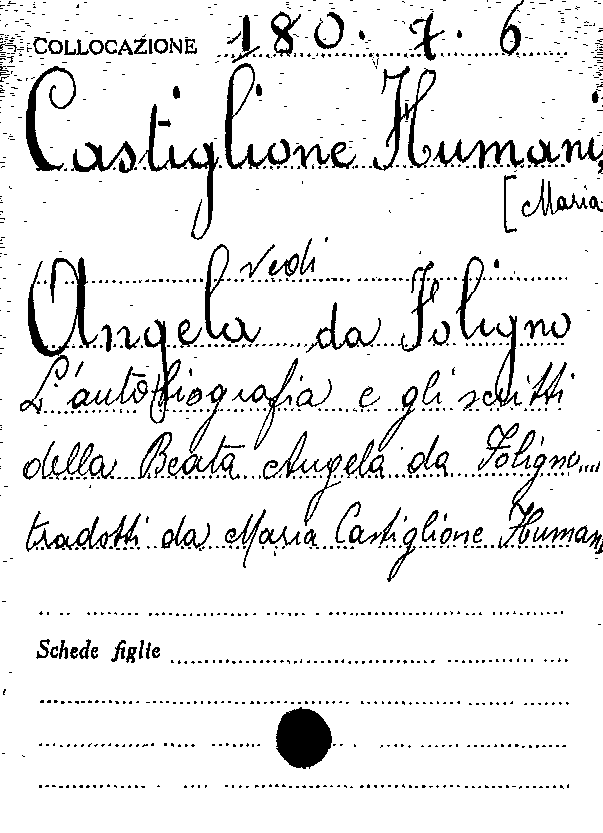 COLLOCAZIONE 180. 7. 6
Castiglione Humani
[Maria
vedi
Angela da Foligno
L'autobiografia e gli scritti
della Beata Angela da Foligno...
tradotti da Maria Castiglione Humani
Schede figlie